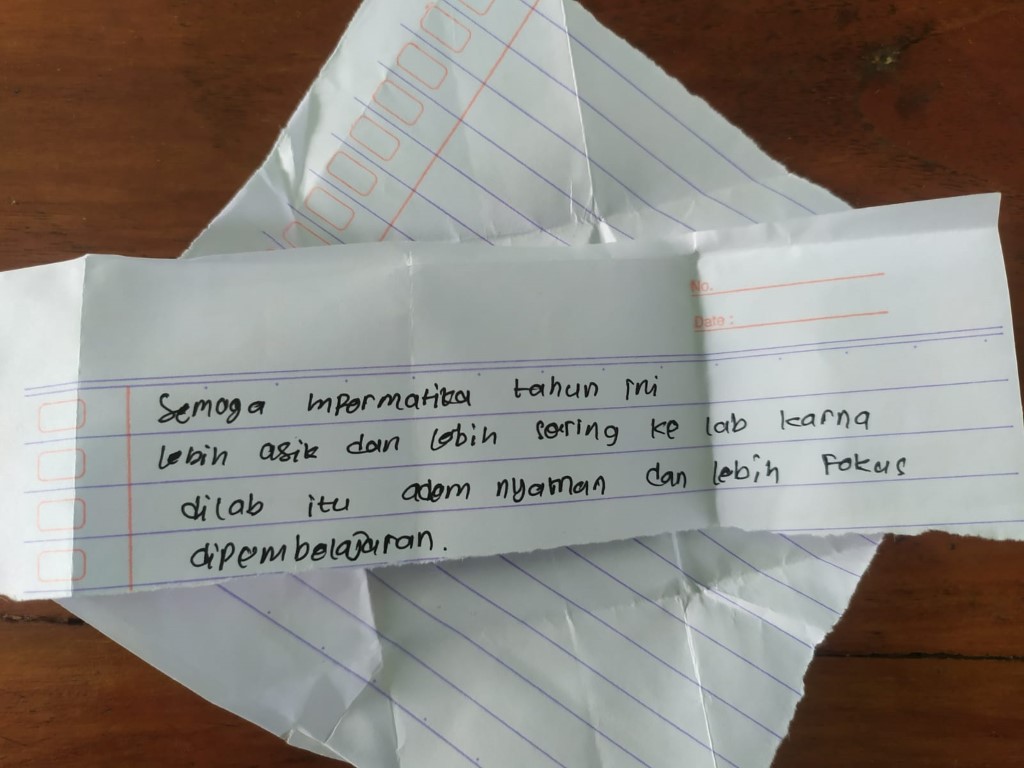 No.
Date :
Semoga inpormatika tahun ini
lebih asik dan lebih sering ke lab karna
dilab itu adem nyaman dan lebih Fokus
dipembelajaran.